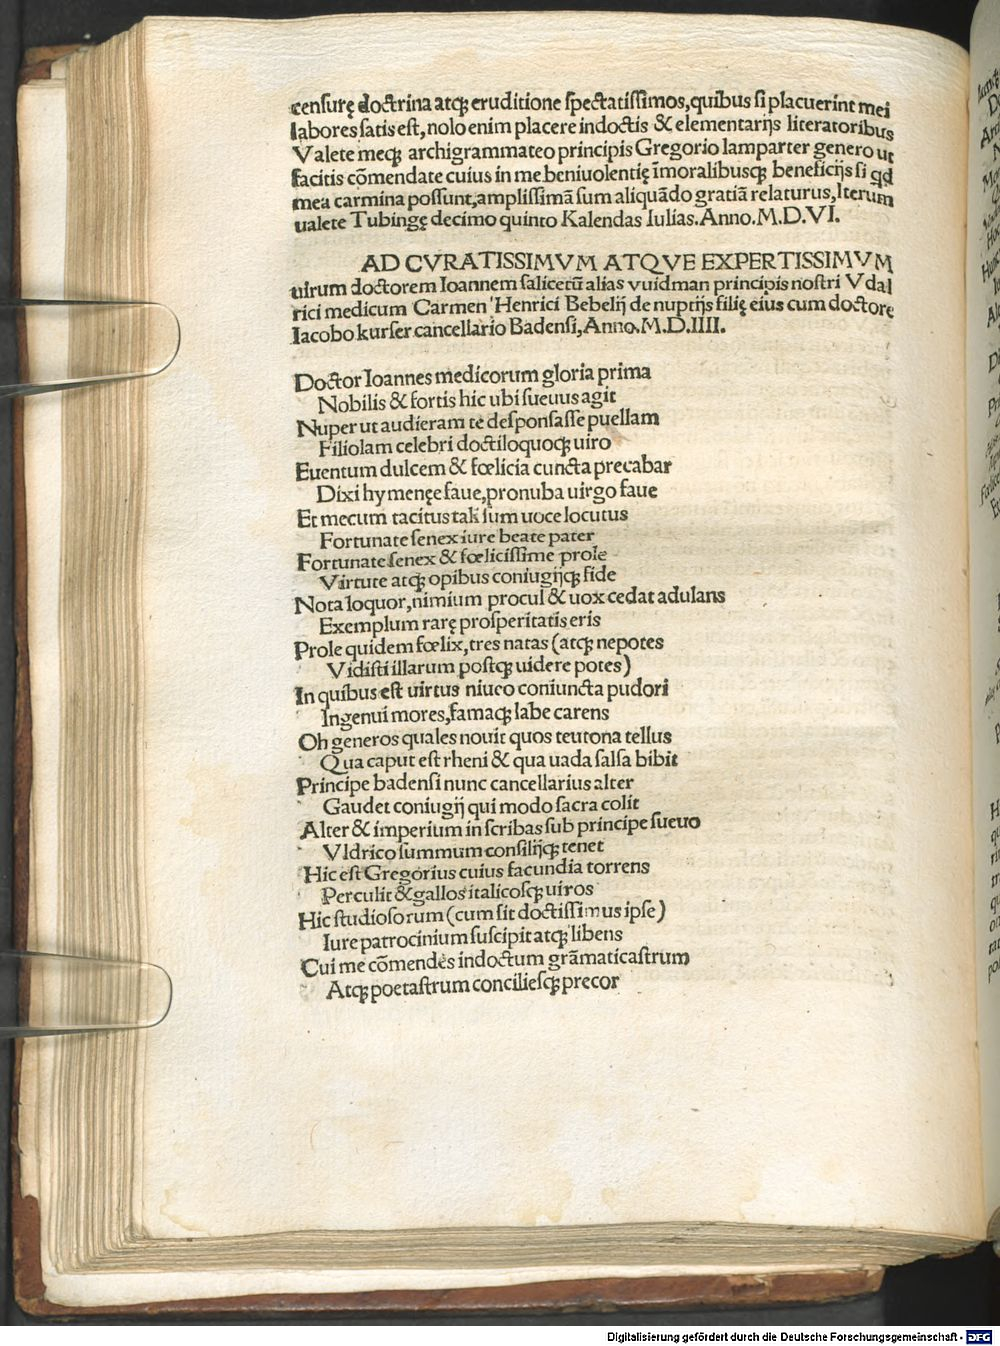 censurę doctrina atqꝫ eruditione spectatissimos, quibus si placuerint mei
labores satis est, nolo enim placere indoctis & elementarijs literatoribus
Valete meqꝫ archigrammateo principis Gregorio lamparter genero ut
facitis cōmendate cuius in me beniuolentię īmoralibusqꝫ beneficijs si qd
mea carmina possunt, amplissimā sum aliquādo gratiā relaturus, Iterum
ualete Tubingę decimo quinto Kalendas Iulias. Anno. M.D.VI.
AD CVRATISSIMVM ATQVE EXPERTISSIMVM
uirum doctorem Ioannem salicetū alias vuidman principis nostri Vdal
rici medicum Carmen Henrici Bebelij de nuptijs filię eius cum doctore
Iacobo kurser cancellario Badensi, Anno. M.D.IIII.
Doctor Ioannes medicorum gloria prima
Nobilis & fortis hic ubi sueuus agit
Nuper ut audieram te desponsasse puellam
Filiolam celebri doctiloquoqꝫ uiro
Euentum dulcem & fœlicia cuncta precabar
Dixi hymenęe faue, pronuba uirgo faue
Et mecum tacitus tali sum uoce locutus
Fortunate senex iure beate pater
Fortunate senex & fœlicissime prole
Virtute atqꝫ opibus coniugijqꝫ fide
Nota loquor, nimium procul & uox cedat adulans
Exemplum rarę prosperitatis eris
Prole quidem fœlix, tres natas (atqꝫ nepotes
Vidisti illarum postqꝫ uidere potes)
In quibus est uirtus niueo coniuncta pudori
Ingenui mores, famaqꝫ labe carens
Oh generos quales nouit quos teutona tellus
Qua caput est rheni & qua uada salsa bibit
Principe badensi nunc cancellarius alter
Gaudet coniugij qui modo sacra colit
Alter & imperium in scribas sub principe sueuo
Vldrico summum consilijqꝫ tenet
Hic est Gregorius cuius facundia torrens
Perculit & gallos italicosqꝫ uiros
Hic studiosorum (cum sit doctissimus ipse)
Iure patrocinium suscipit atqꝫ libens
Cui me cōmendes indoctum grāmaticastrum
Atqꝫ poetastrum conciliesqꝫ precor
Digitalisierung gefördert durch die Deutsche Forschungsgemeinschaft - DFG